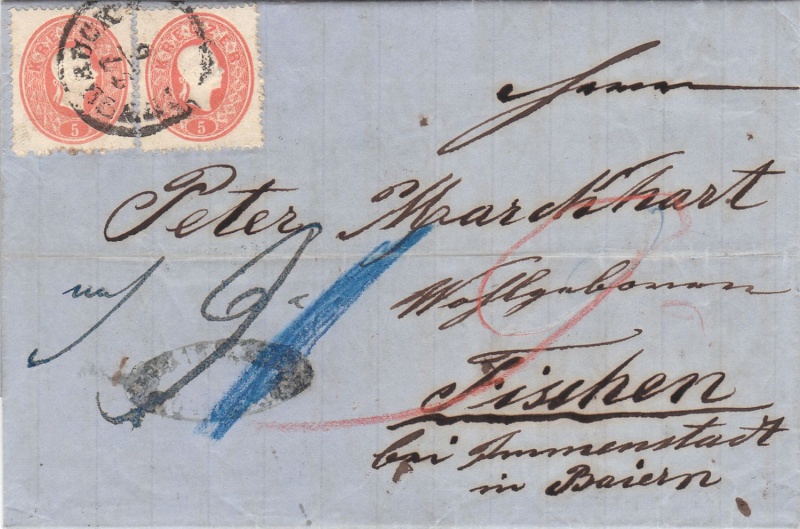 KREUZER KREUZER
5 5
INNSBRUCK
Herrn
Peter Marckhart
Wohlgeboren
9
Fischen
bei Immenstadt
in Baiern